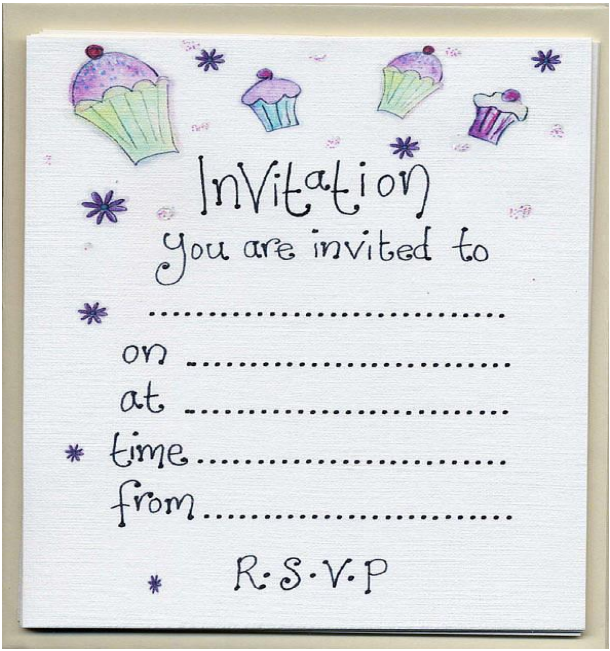 Invitation
you are invited to
..............................
on ..............................
at ..............................
time..............................
from..............................
R.S.V.P